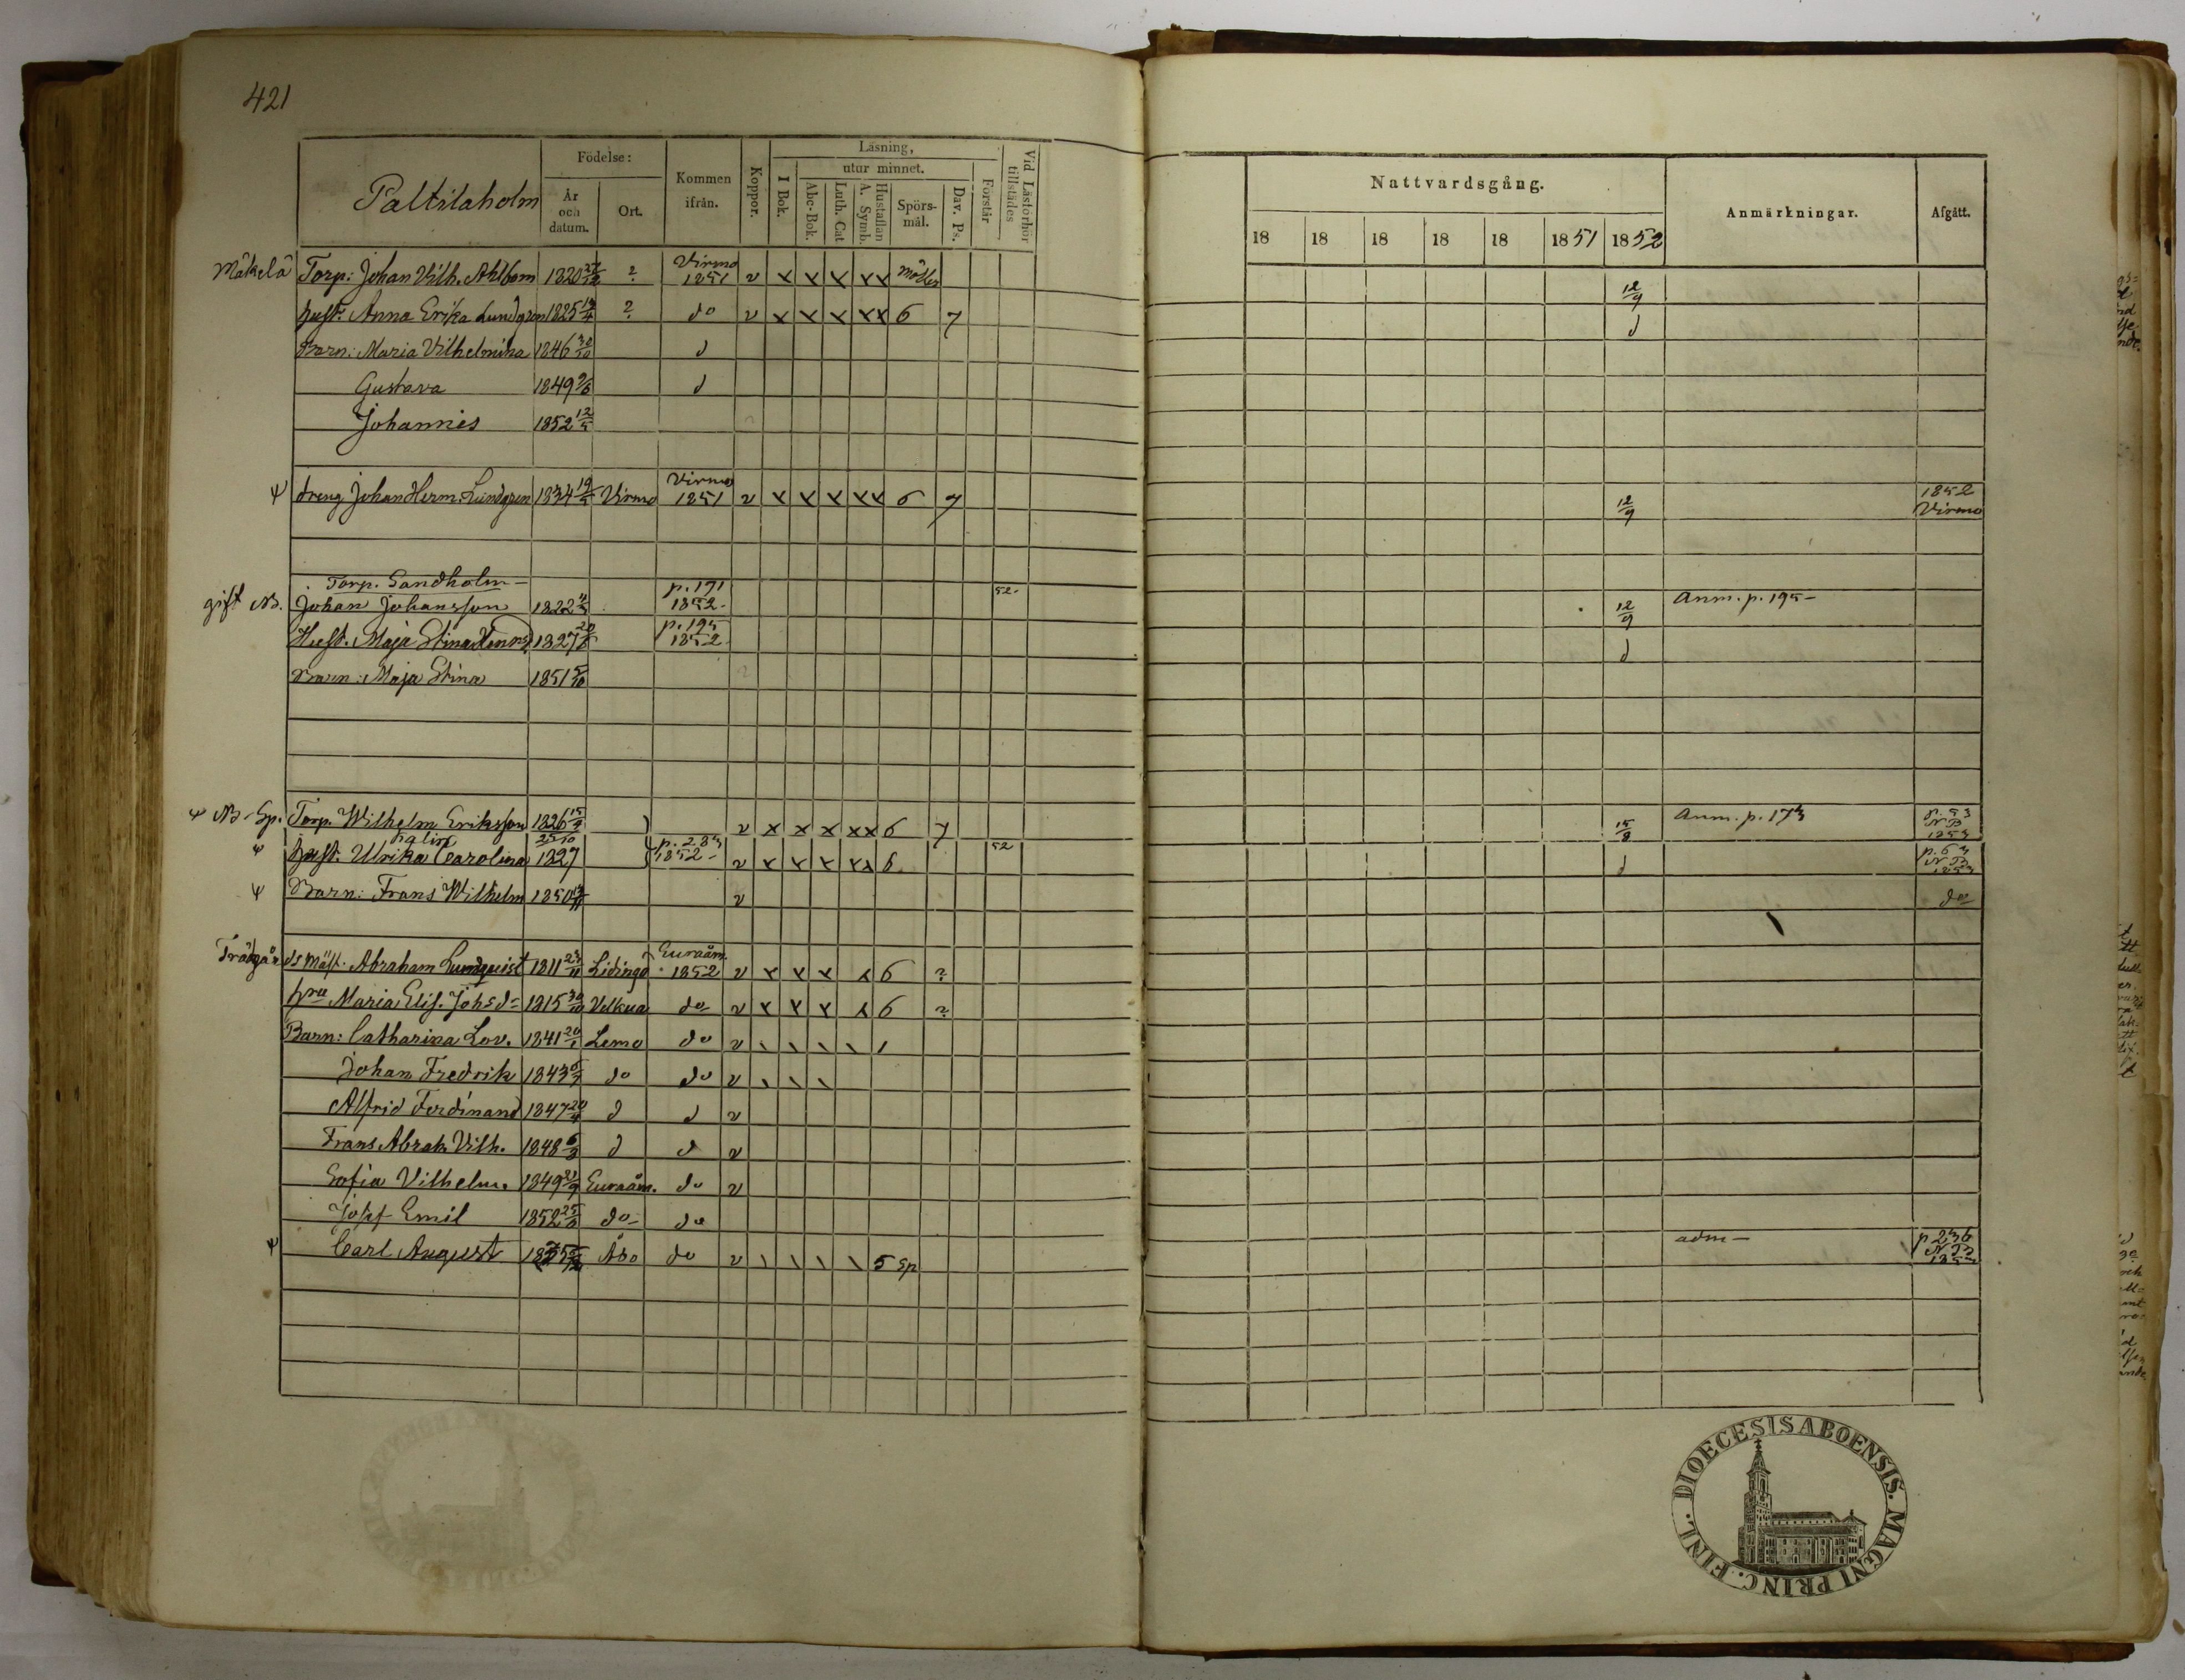 421
Paltilaholm
Födelse:
År och datum.
Ort.
Kommen ifrån.
Koppor.
Läsning,
I Bok.
utur minnet.
Abc-Bok.
Luth. Cat
Hustaflan A. Symb.
Spörs-mål.
Dav. Ps.
Förstår
Vid Läsförhör tillstädes
Nattvardsgång.
18 18 18 18 18 1851 1852
Anmärkningar.
Afgått.
Mäkelä Torp: Johan Vilh. Ahlbom 1820 ? Virmo 1851 v x x x xx 12/9
hust: Anna Erika Lundgren 1825 ? do v x x x xx 6 7 d
Barn: Maria Vilhelmina 1846 30/10 d
Gustava 1849 d
Johannes 1852 12/5
Ψ dreng Johan Herm. Lundgren 1834 Virmo Virmo 1851 v x x x xx 6 7 12/9 1852 Virmo
Torp. Sandholm
gift NB. Johan Johansson 1822 p. 171 1852. 52. 12/9 Anm. p. 195
Hust. Maja Stina 1827 p. 195 1852 d
Barn: Maja Stina 1851
Ψ NB Sp. Torp. Wilhelm Eriksson 1826 v x x x xx 6 7 15/8 Anm. p. 173 p. 53 NB 1853
Ψ hust. Ulrika Carolina 1827 p. 283 1852 v x x x xx 6 52 d p. 53 NB 1853
Ψ Barn: Frans Wilhelm 1850 v do
Trädgårdsmäst. Abraham Lundquist 1811 Lidingö Euraåm. 1852 v x x x x 6 ?
hru Maria Elis. Johsd 1815 30/10 Velkua do v x x x x 6 ?
Barn: Catharina Lov. 1841 20/1 Lemo do v
Johan Fredrik 1843 do do v
Alfrid Ferdinand 1847 d d v
Frans Abrah. Vilh. 1848 d d v
Sofia Vilhelm. 1849 Euraåm. do v
Josef Emil 1852 do do
Ψ Carl August Åbo do v 5 Sp adm p 236 NB 1853
DIOECESIS ABOENSIS. MAGNI PRINC. FINL.